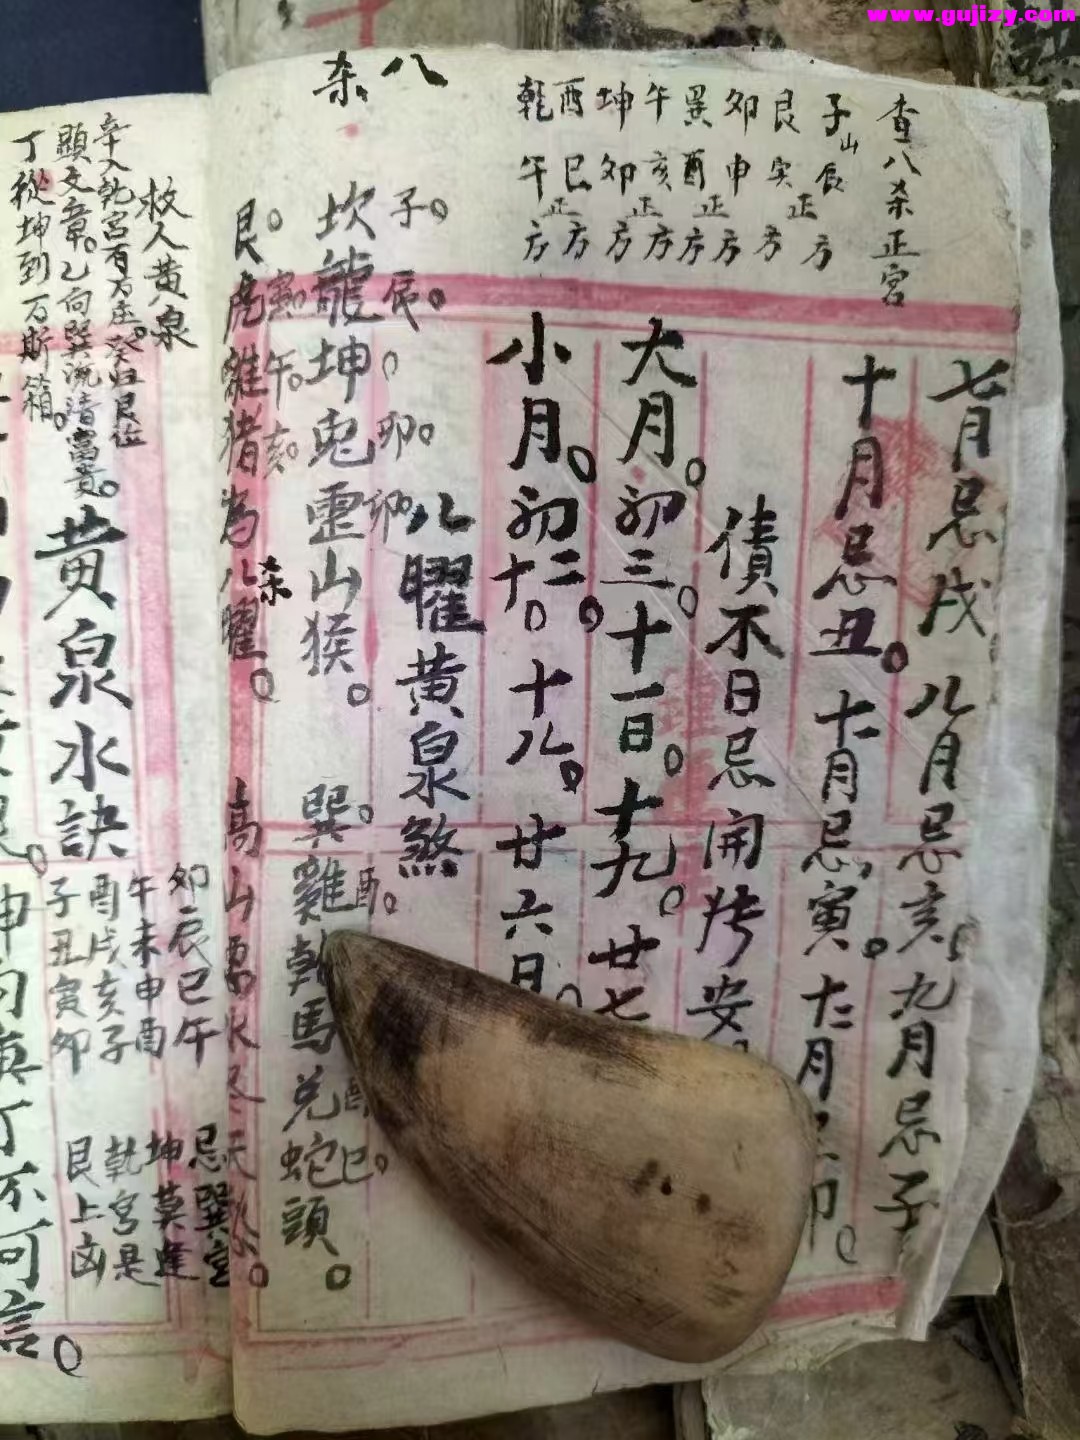 www.gujizy.com
查八杀正宮
子山辰正方
艮寅方
卯申正方
巽酉正方
午亥正方
坤卯正方
酉巳正方
乾午方
八杀
七月忌戌 八月忌亥 九月忌子
十月忌丑 十一月忌寅 十二月
債不日忌開 安
大月 初三 十一日 十九 廿七
小月 初二 十 十八 廿六日
八曜黄泉煞
子 辰 卯 卯 酉
坎龍坤兎震山猴 巽雞乾馬兌蛇頭
艮虎離猪為八曜
寅 午 亥 杀 巳
救人黄泉
辛入乾宮百万庄 癸归艮位
顯文章 乙向巽流清富贵
丁從坤到万斯箱
黄泉水訣
卯辰巳午 忌巽宮
午未申酉 坤莫逢
酉戌亥子 乾宮是
子丑寅卯 艮上凶
坤向庚丁不可言